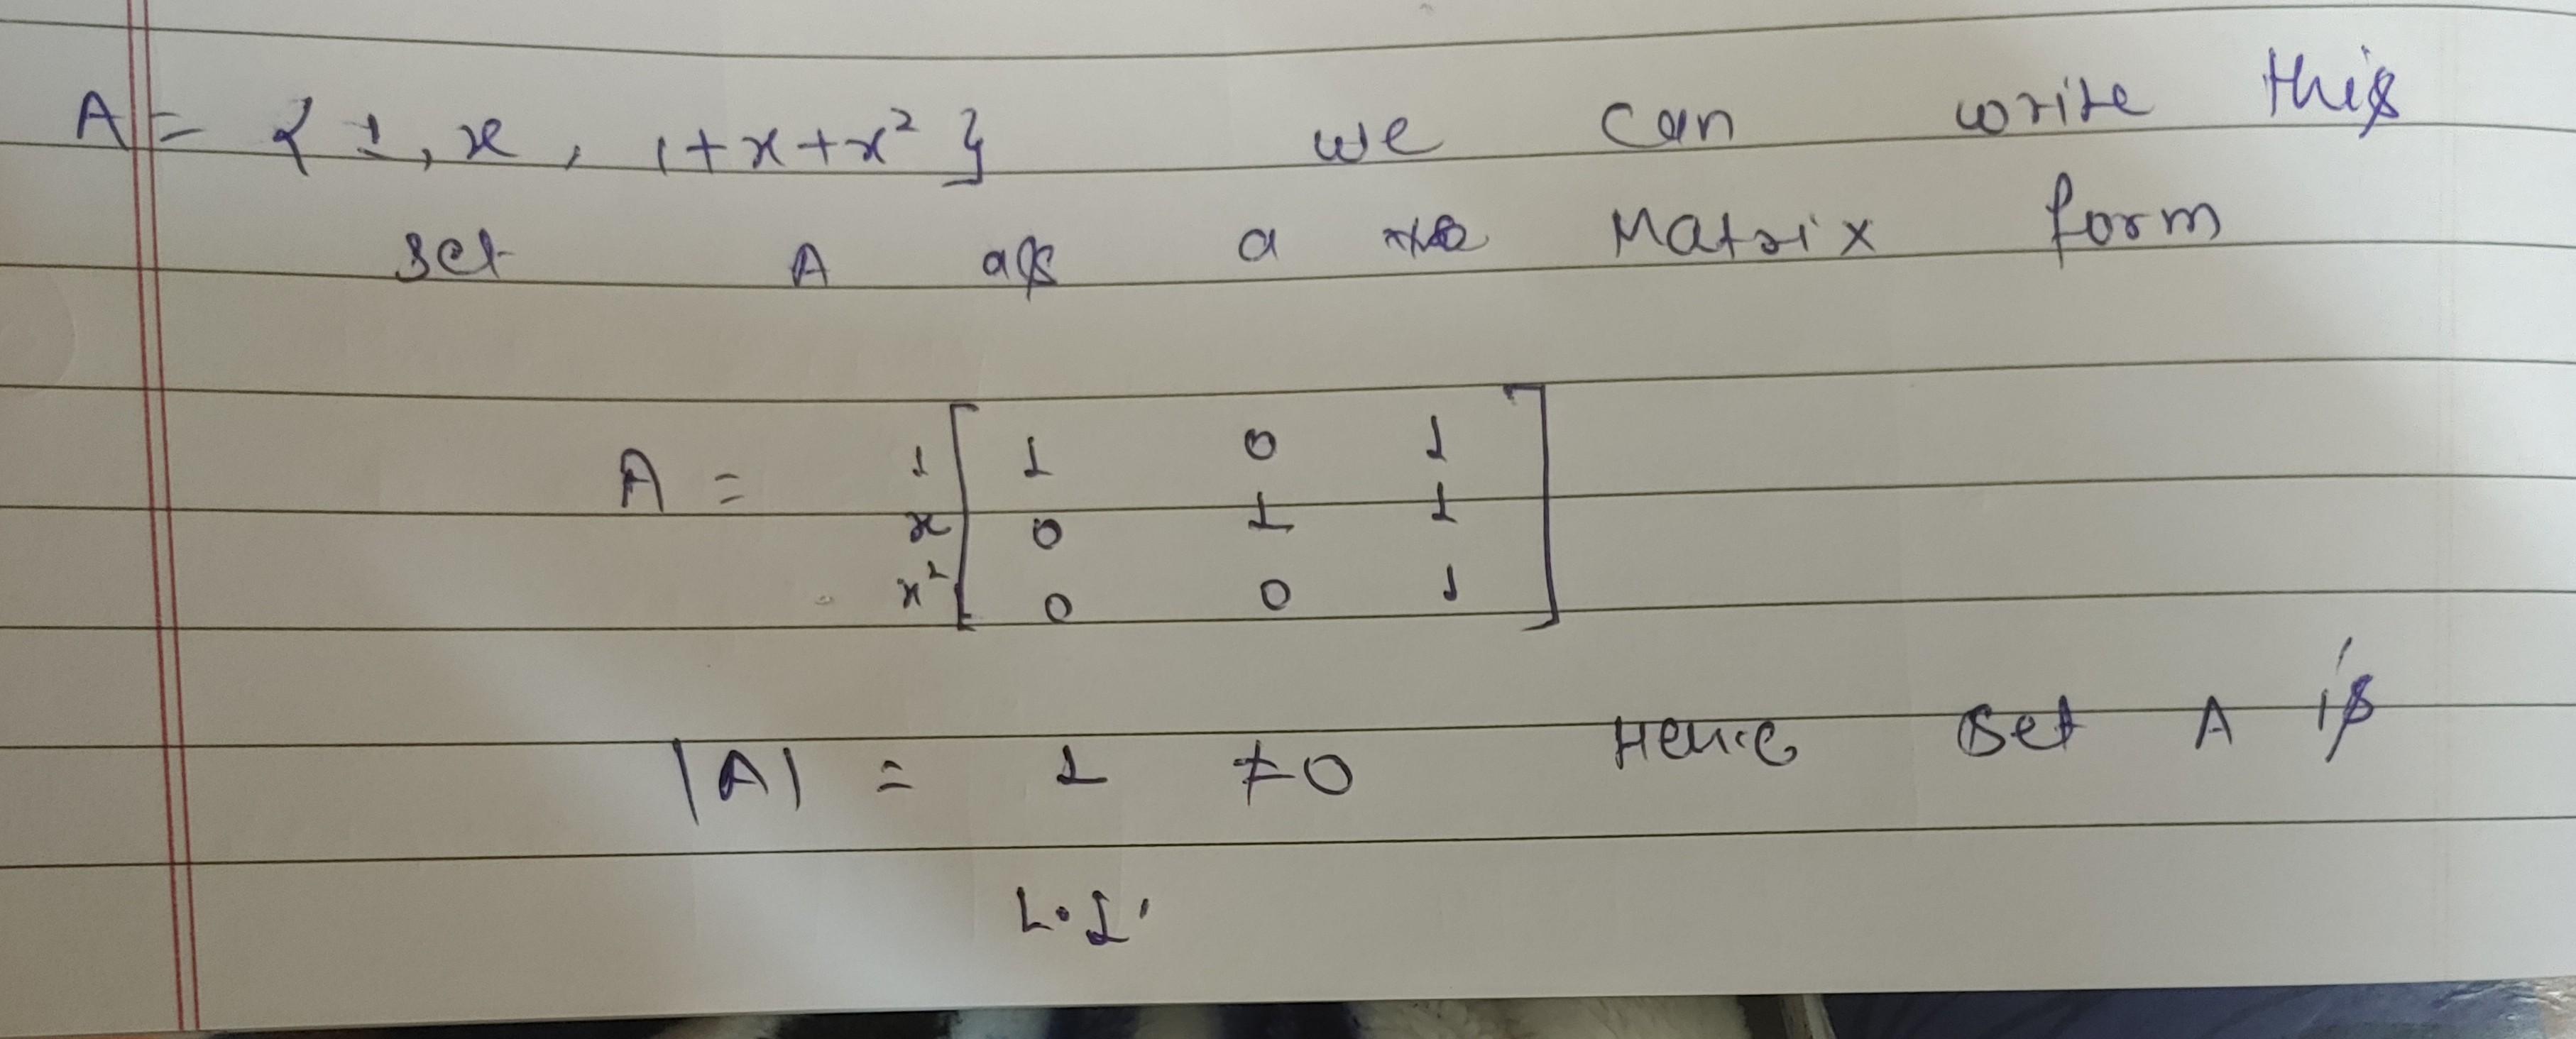 A = { 1, x, 1+x+x² } we can write this
set A as a Matrix form
A = 1 [ 1 0 1
x 0 1 1
x² 0 0 1 ]
|A| = 1 ≠0 Hence set A is
L.I.